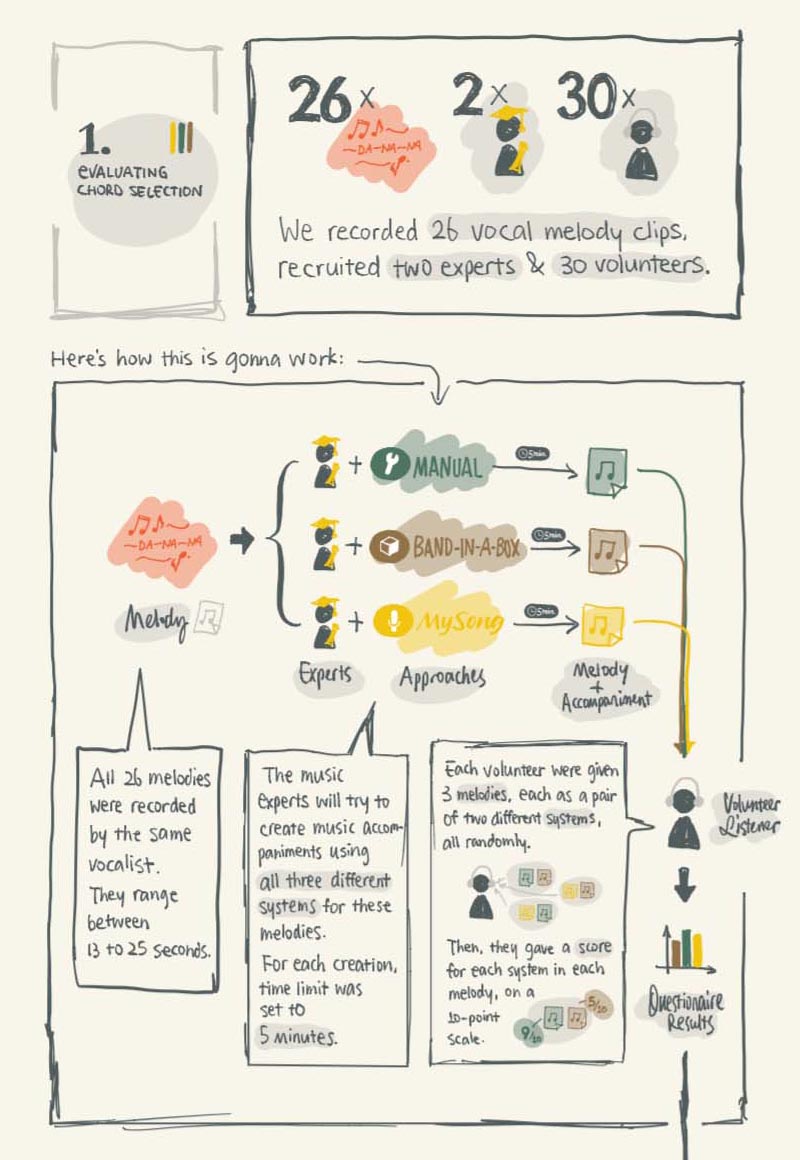 1.
EVALUATING
CHORD SELECTION
26x
2x
30x
~DA-NA-NA
We recorded 26 vocal melody clips,
recruited two experts & 30 volunteers.
Here's how this is gonna work:
~DA-NA-NA
Melody
+ MANUAL
5min
+ BAND-IN-A-BOX
5min
+ MySong
5min
Experts
Approaches
Melody
+
Accompaniment
All 26 melodies
were recorded
by the same
vocalist.
They range
between
13 to 25 seconds.
The music
experts will try to
create music accom-
paniments using
all three different
systems for these
melodies.
For each creation,
time limit was
set to
5 minutes.
Each volunteer were given
3 melodies, each as a pair
of two different systems,
all randomly.
Then, they gave a score
for each system in each
melody, on a
10-point
scale.
9/10
5/10
Volunteer
Listener
Questionaire
Results